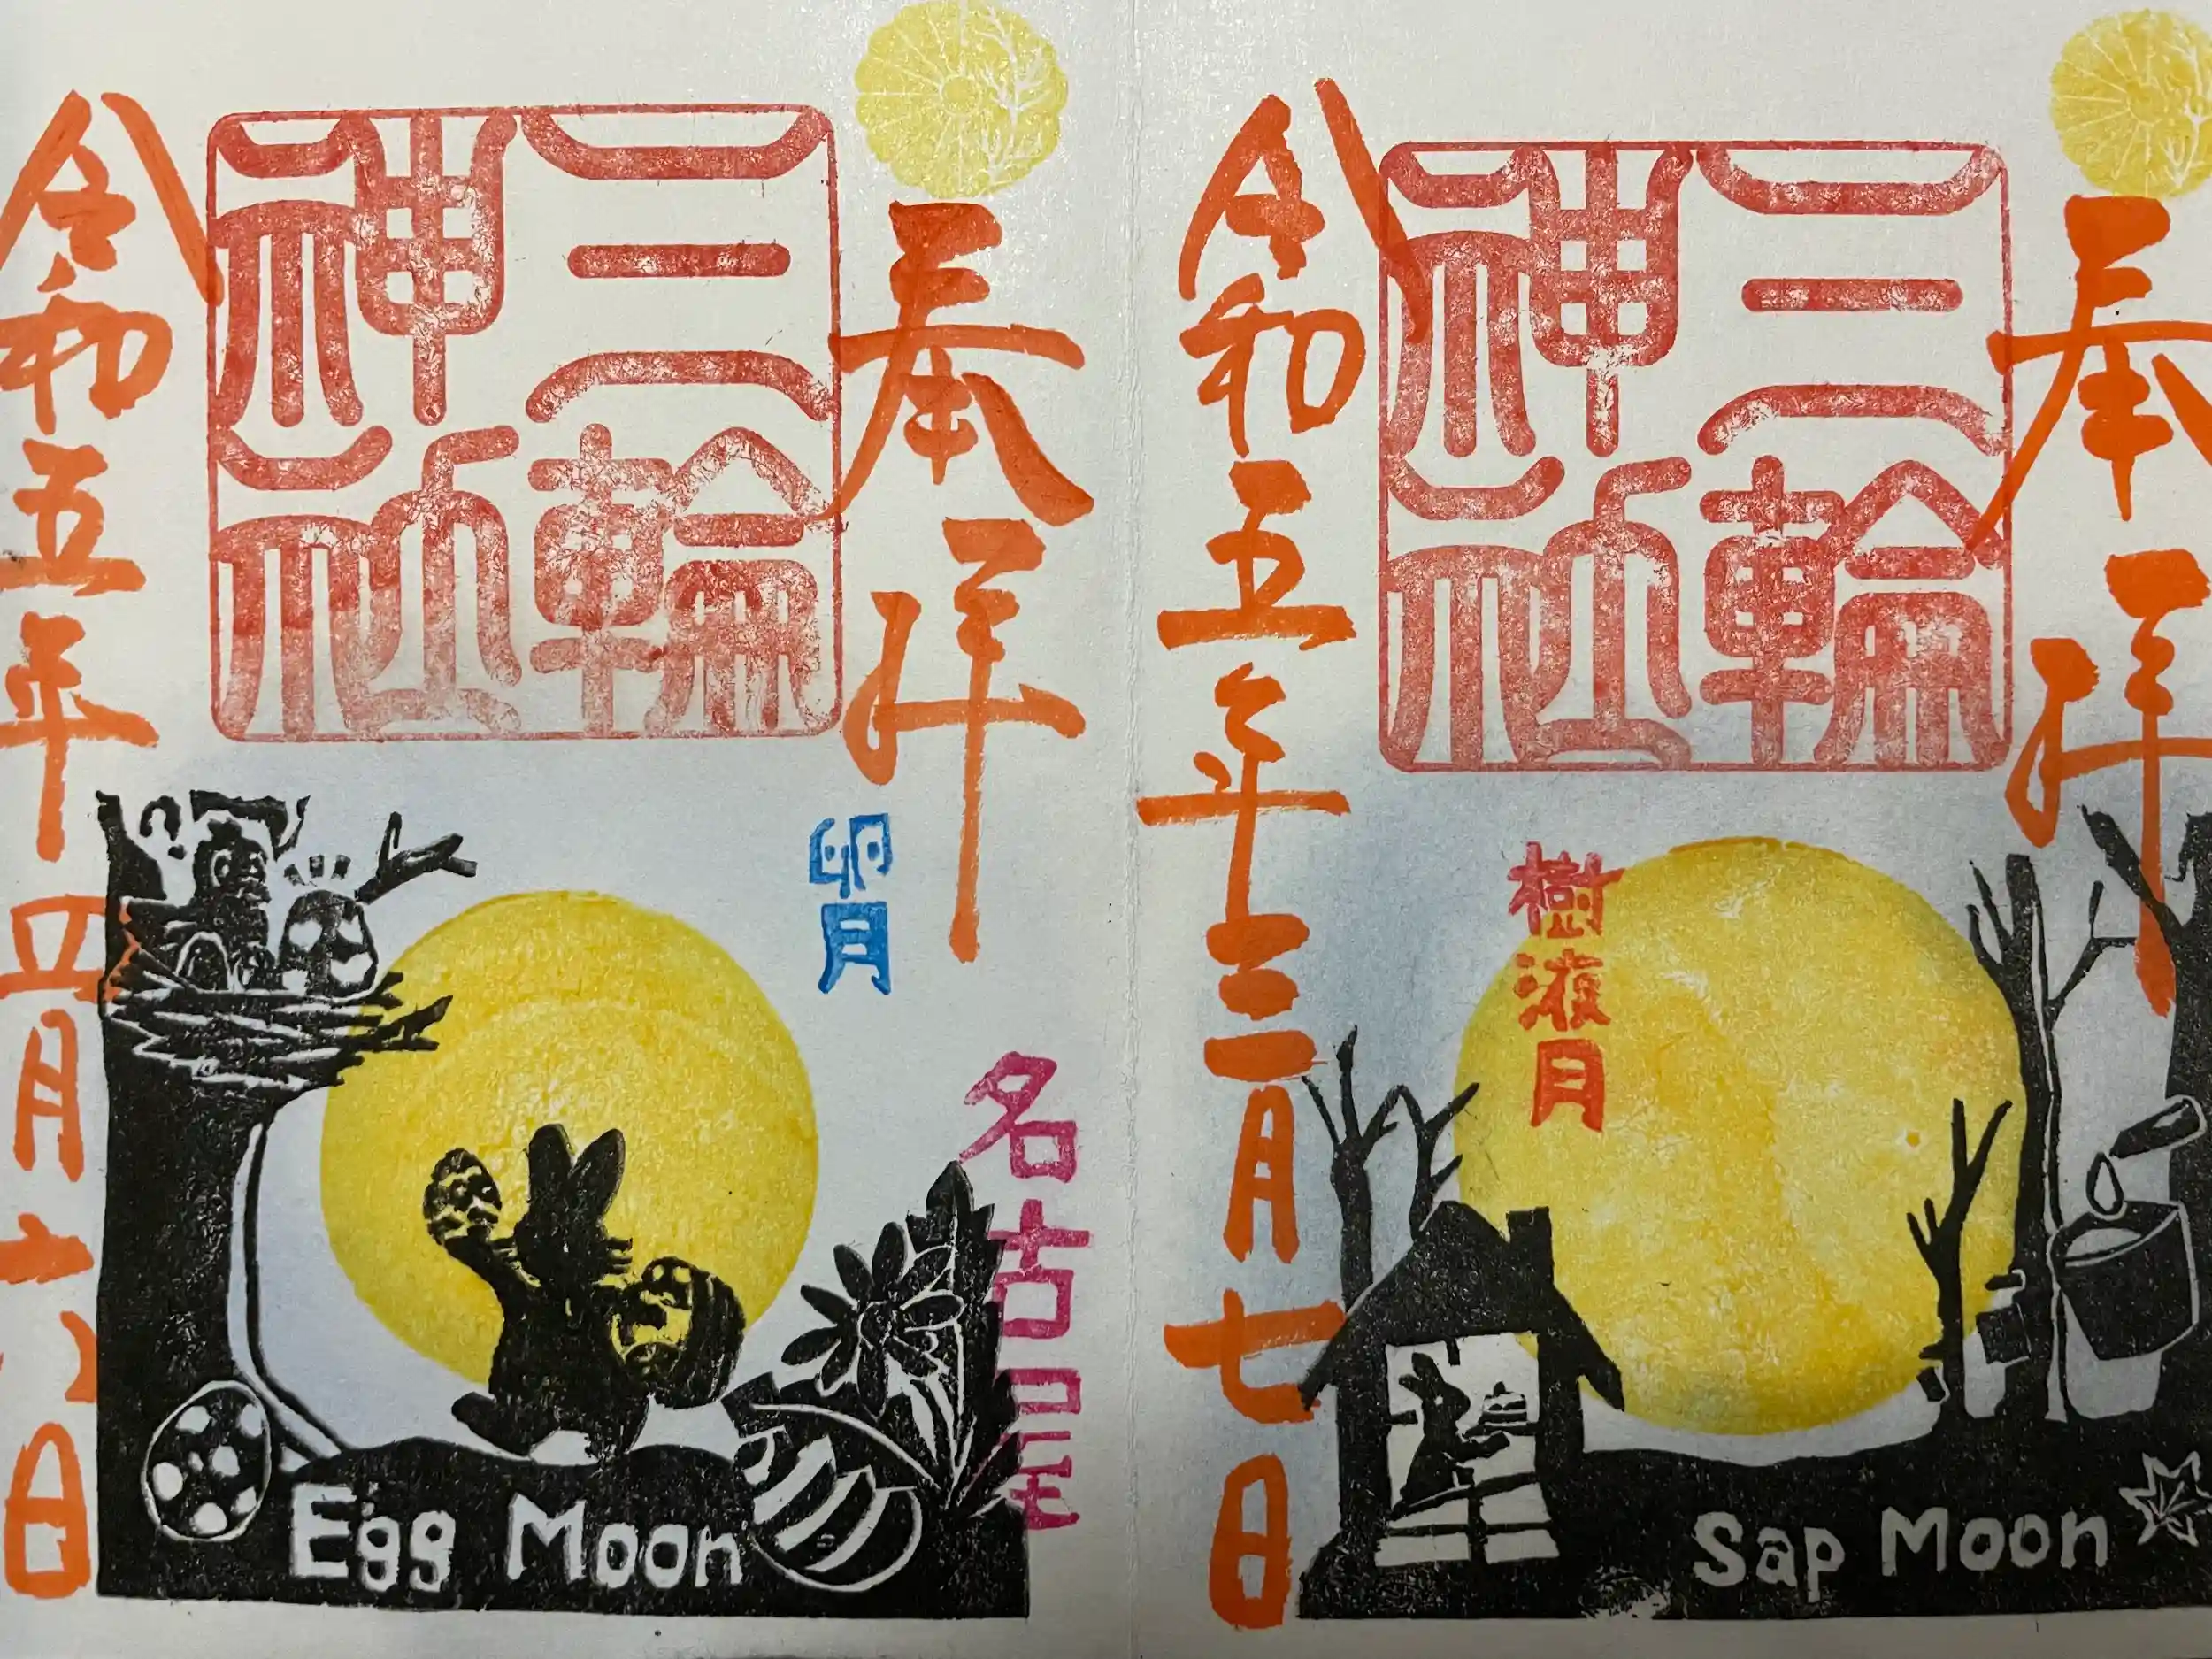 奉拝
三輪
神社
樹液月
令和五年三月七日
Sap Moon
奉拝
名古屋
卵月
三輪
神社
令和五年四月六日
Egg Moon